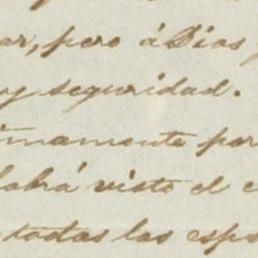 ar, pero á Dios
y seguridad.
timamente por
habrá visto el
todas las esp